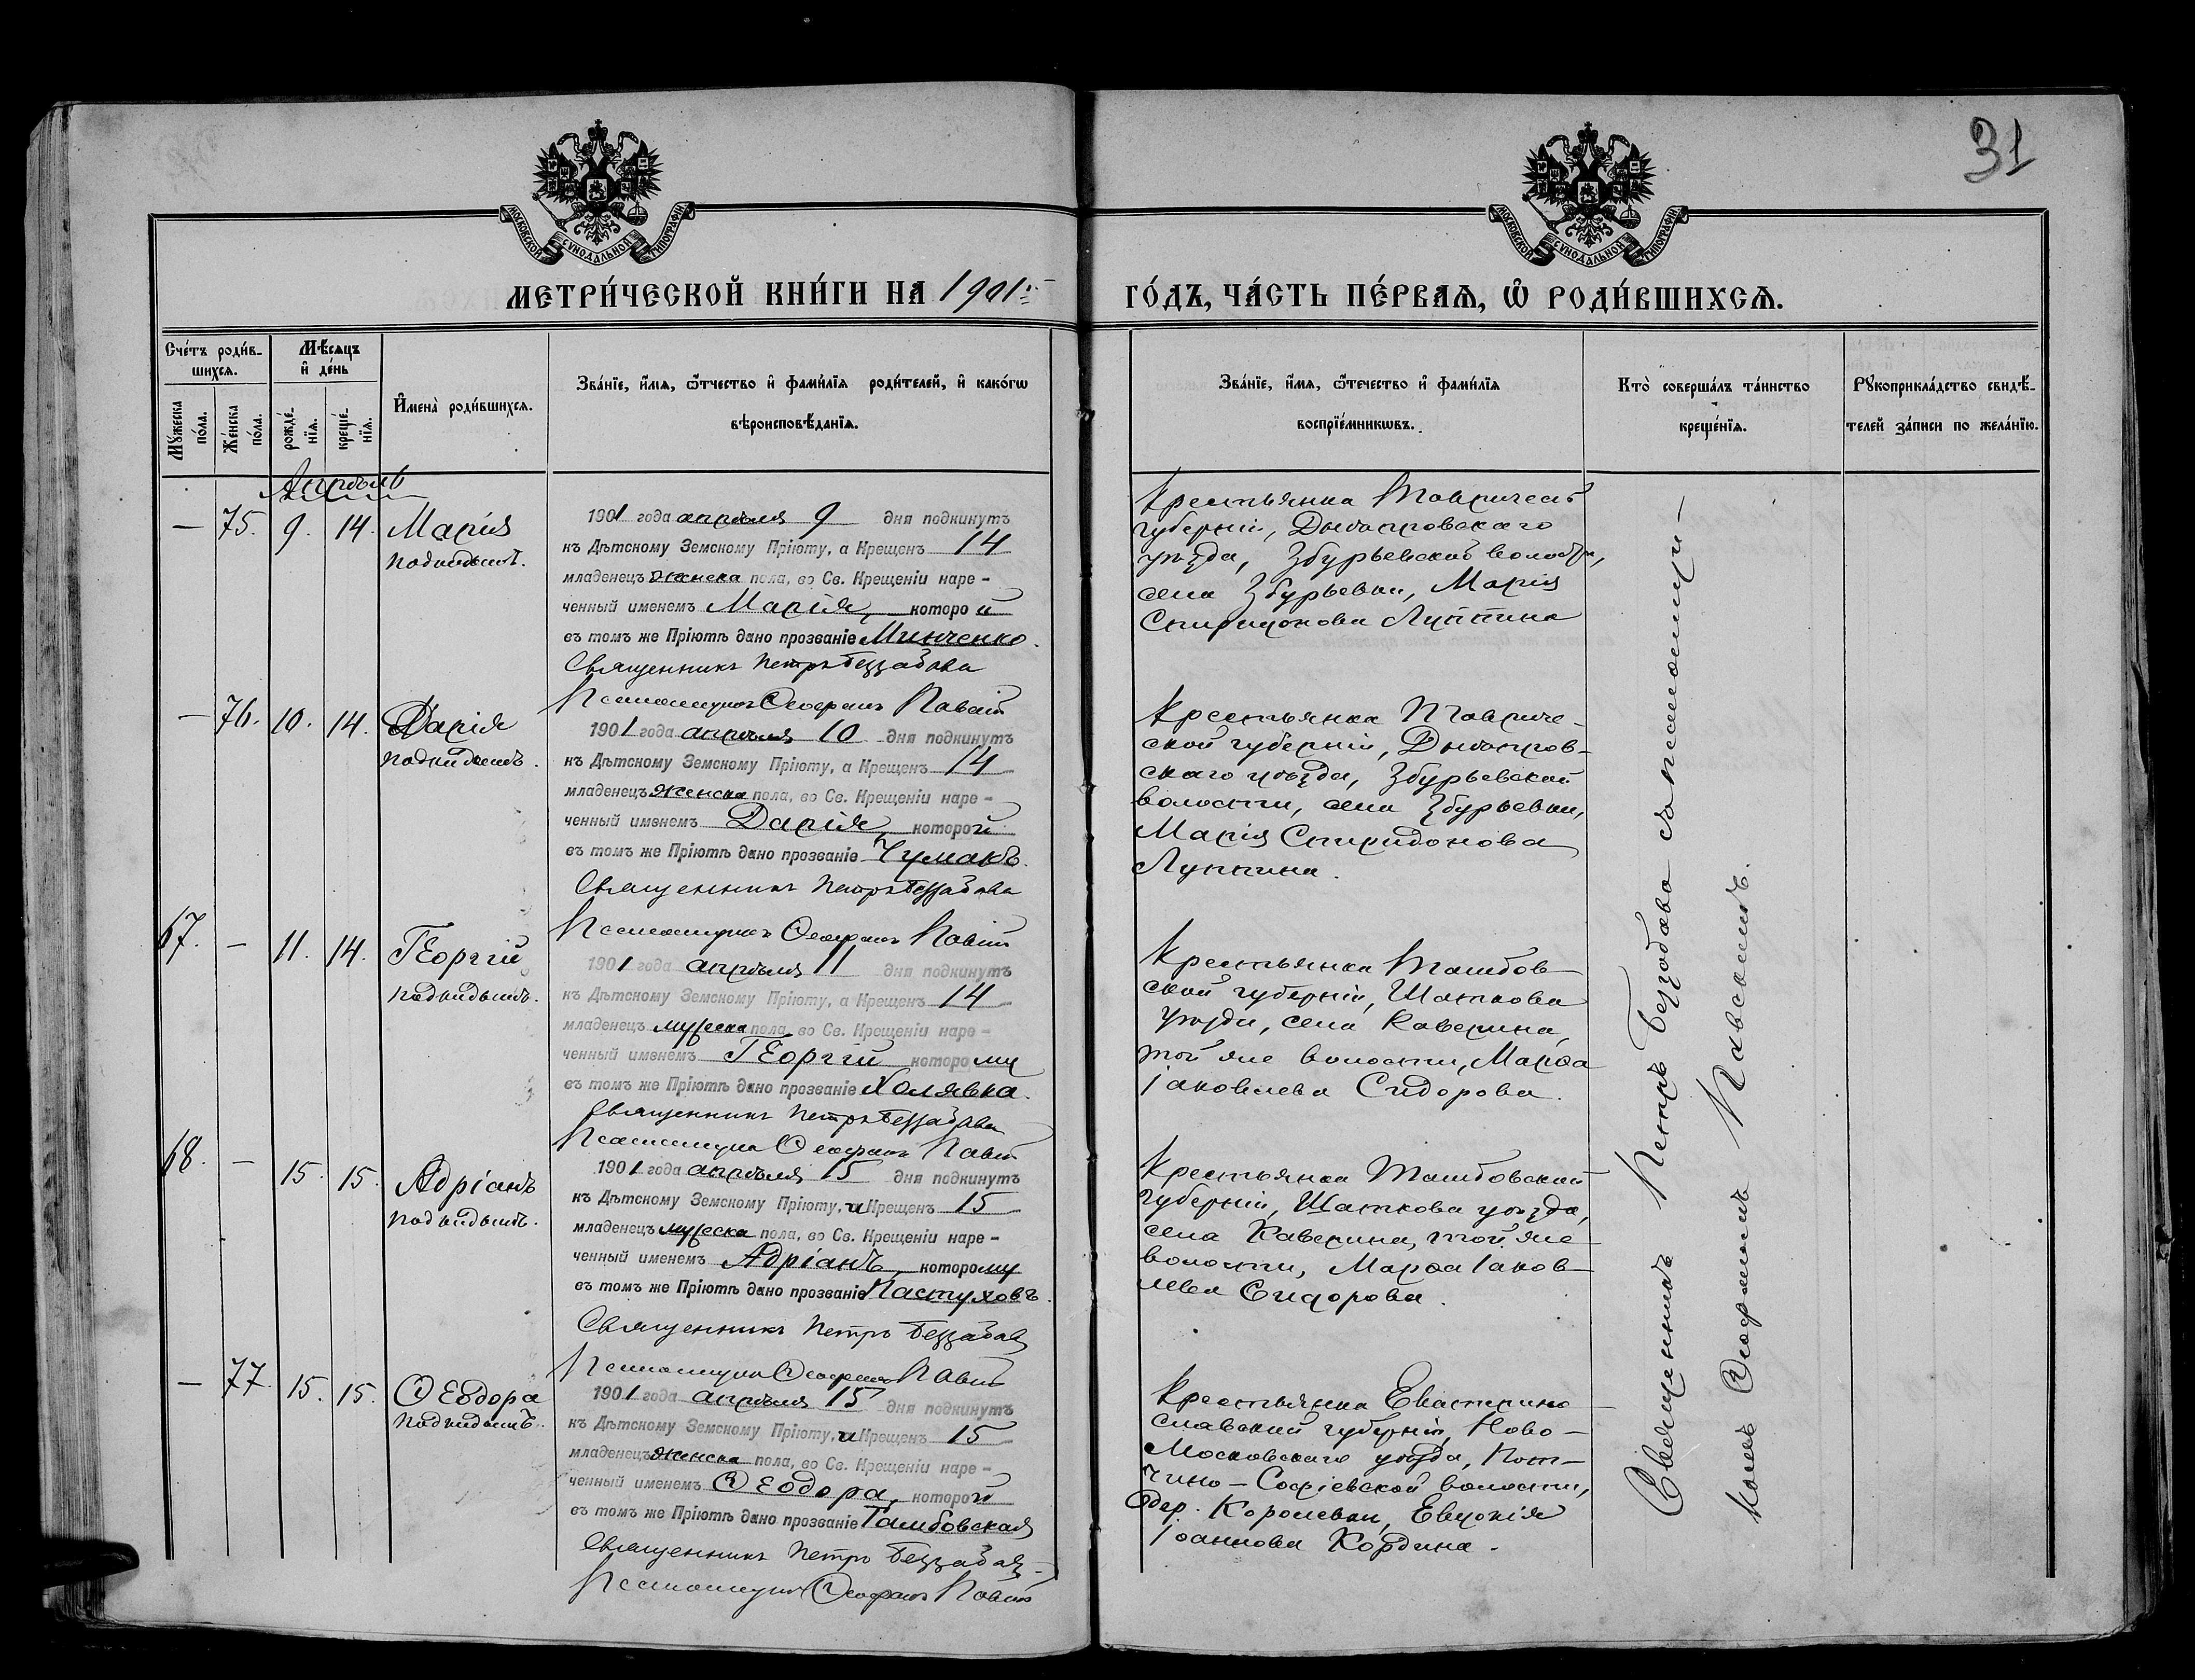 31
МОСКОВСКОЙ СѴНОДАЛЬНОЙ ТИПОГРАФІИ
МОСКОВСКОЙ СѴНОДАЛЬНОЙ ТИПОГРАФІИ
МЕТРИ́ЧЕСКОЙ КНИ́ГИ НА 1901:
ГО́ДЪ, ЧА́СТЬ ПЕ́РВАЯ, Ѿ РОДИ́ВШИХСЯ.
Сче́тъ роди́в-
шихся.
Мꙋ́жеска
по́ла.
Же́нска
по́ла.
Мѣ́сяцъ
и҆ де́нь
рожде́-
нїя.
креще́-
нїя.
И҆мена̀ роди́вшихся.
Зва́нїе, и҆́мя, ѻ҆́тчество и҆ фами́лїя роди́телей, и҆ како́гѡ
вѣроисповѣ́данїя.
Зва́нїе, и҆́мя, ѻ҆́течество и҆ фами́лїя
воспрїе́мникѡвъ.
Кто̀ соверша́лъ та́инство
креще́нїя.
Рꙋкоприкла́дство свидѣ́-
телей за́писи по жела́нїю.
Апрѣль
— 75. 9. 14. Марія
подкидышъ.
1901 года апрѣля 9 дня подкинутъ
къ Дѣтскому Земскому Пріюту, а Крещенъ 14
младенецъ женска пола, во Св. Крещеніи наре-
ченный именемъ Марія, которой
въ томъ же Пріютѣ дано прозваніе Минченко.
Священникъ Петръ Беззабава
Псаломщикъ Ѳеофанъ
Крестьянка Таврической
губерніи, Днѣпровскаго
уѣзда, Збурьевской волости,
села Збурьевки, Марія
Спиридонова Луппина
— 76. 10. 14. Дарія
подкидышъ.
1901 года апрѣля 10 дня подкинутъ
къ Дѣтскому Земскому Пріюту, а Крещенъ 14
младенецъ женска пола, во Св. Крещеніи наре-
ченный именемъ Дарія, которой
въ томъ же Пріютѣ дано прозваніе Чумакъ.
Священникъ Петръ Беззабава
Псаломщикъ Ѳеофанъ
Крестьянка Тавриче-
ской губерніи, Днѣпров-
скаго уѣзда, Збурьевской
волости, села Збурьевки,
Марія Спиридонова
Луппина.
67. — 11. 14. Георгій
подкидышъ.
1901 года апрѣля 11 дня подкинутъ
къ Дѣтскому Земскому Пріюту, а Крещенъ 14
младенецъ мужеска пола, во Св. Крещеніи наре-
ченный именемъ Георгій которому
въ томъ же Пріютѣ дано прозваніе Холявка.
Священникъ Петръ Беззабава
Псаломщикъ Ѳеофанъ
Крестьянка Тамбов-
ской губерніи, Шатскова
уѣзда, села Каверина,
той же волости, Марѳа
Іаковлева Сидорова.
68. — 15. 15. Адріанъ
подкидышъ.
1901 года апрѣля 15 дня подкинутъ
къ Дѣтскому Земскому Пріюту, и Крещенъ 15
младенецъ мужеска пола, во Св. Крещеніи наре-
ченный именемъ Адріанъ, которому
въ томъ же Пріютѣ дано прозваніе Пастуховъ.
Священникъ Петръ Беззабава
Псаломщикъ Ѳеофанъ
Крестьянка Тамбовской
губерніи, Шатскова уѣзда,
села Каверина, той же
волости, Марѳа Іаков-
лева Сидорова.
— 77. 15. 15. Ѳеодора
подкидышъ.
1901 года апрѣля 15 дня подкинутъ
къ Дѣтскому Земскому Пріюту, и Крещенъ 15
младенецъ женска пола, во Св. Крещеніи наре-
ченный именемъ Ѳеодора, которой
въ томъ же Пріютѣ дано прозваніе Тамбовская
Священникъ Петръ Беззабава
Псаломщикъ Ѳеофанъ
Крестьянка Екатерино-
славской губерніи, Ново-
Московскаго уѣзда,
Софіевской волости,
дер. Королевки, Евдокія
Іоаннова Кордина.
Священникъ Петръ Беззабава съ псаломщи-
комъ Ѳеофаномъ Павскимъ.